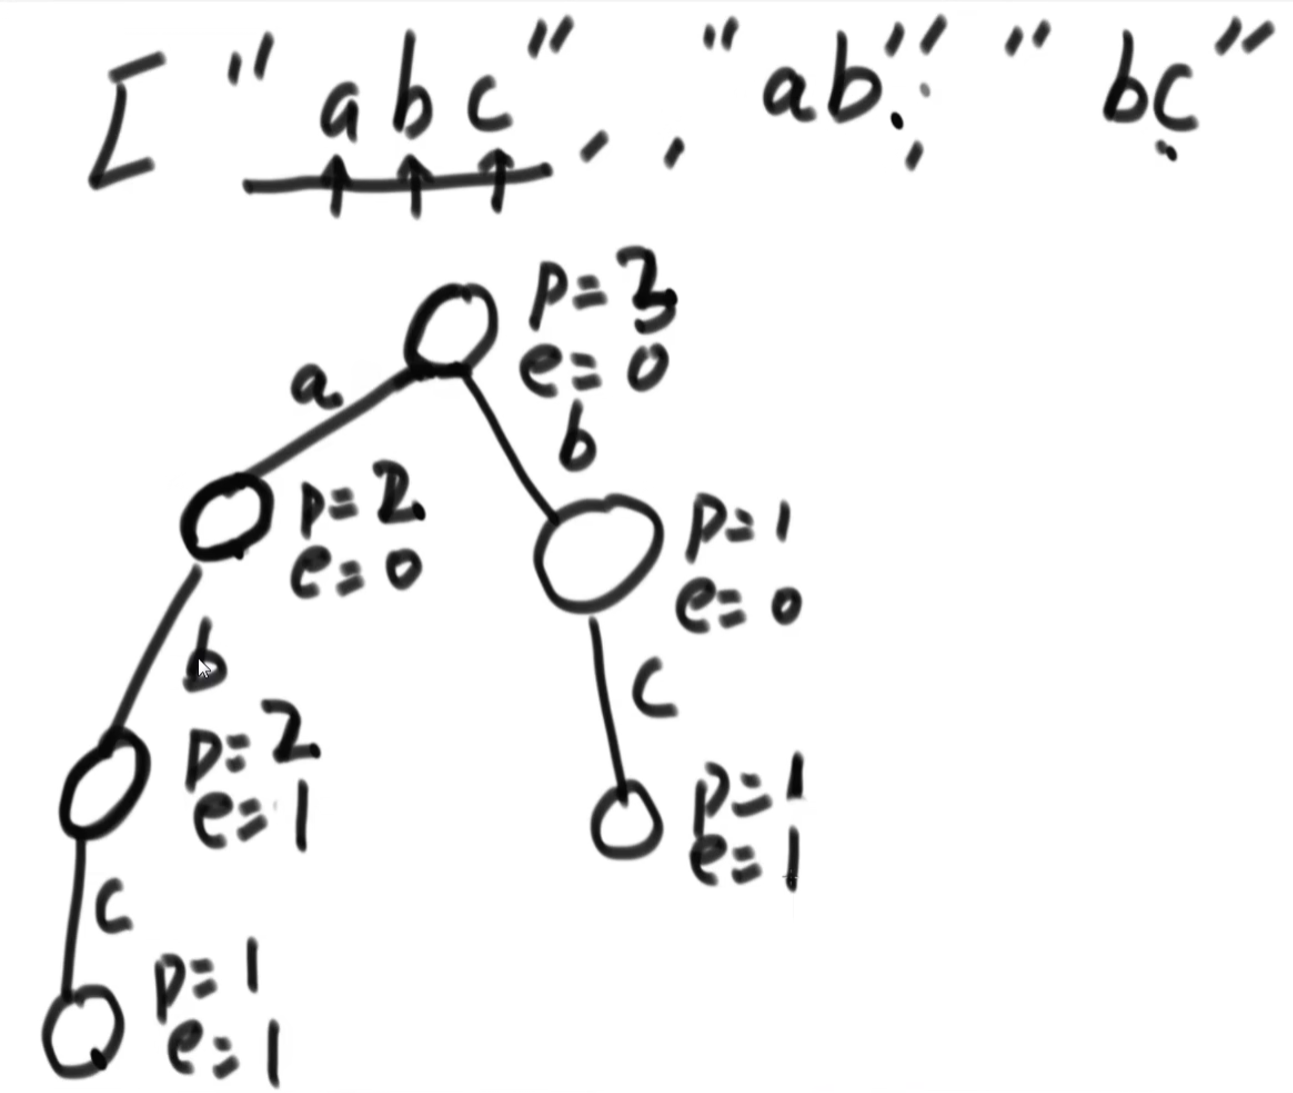 ["abc", , "ab", "bc"
p=3
e=0
a
b
p=2
e=0
p=1
e=0
b
c
p=2
e=1
p=1
e=1
c
p=1
e=1